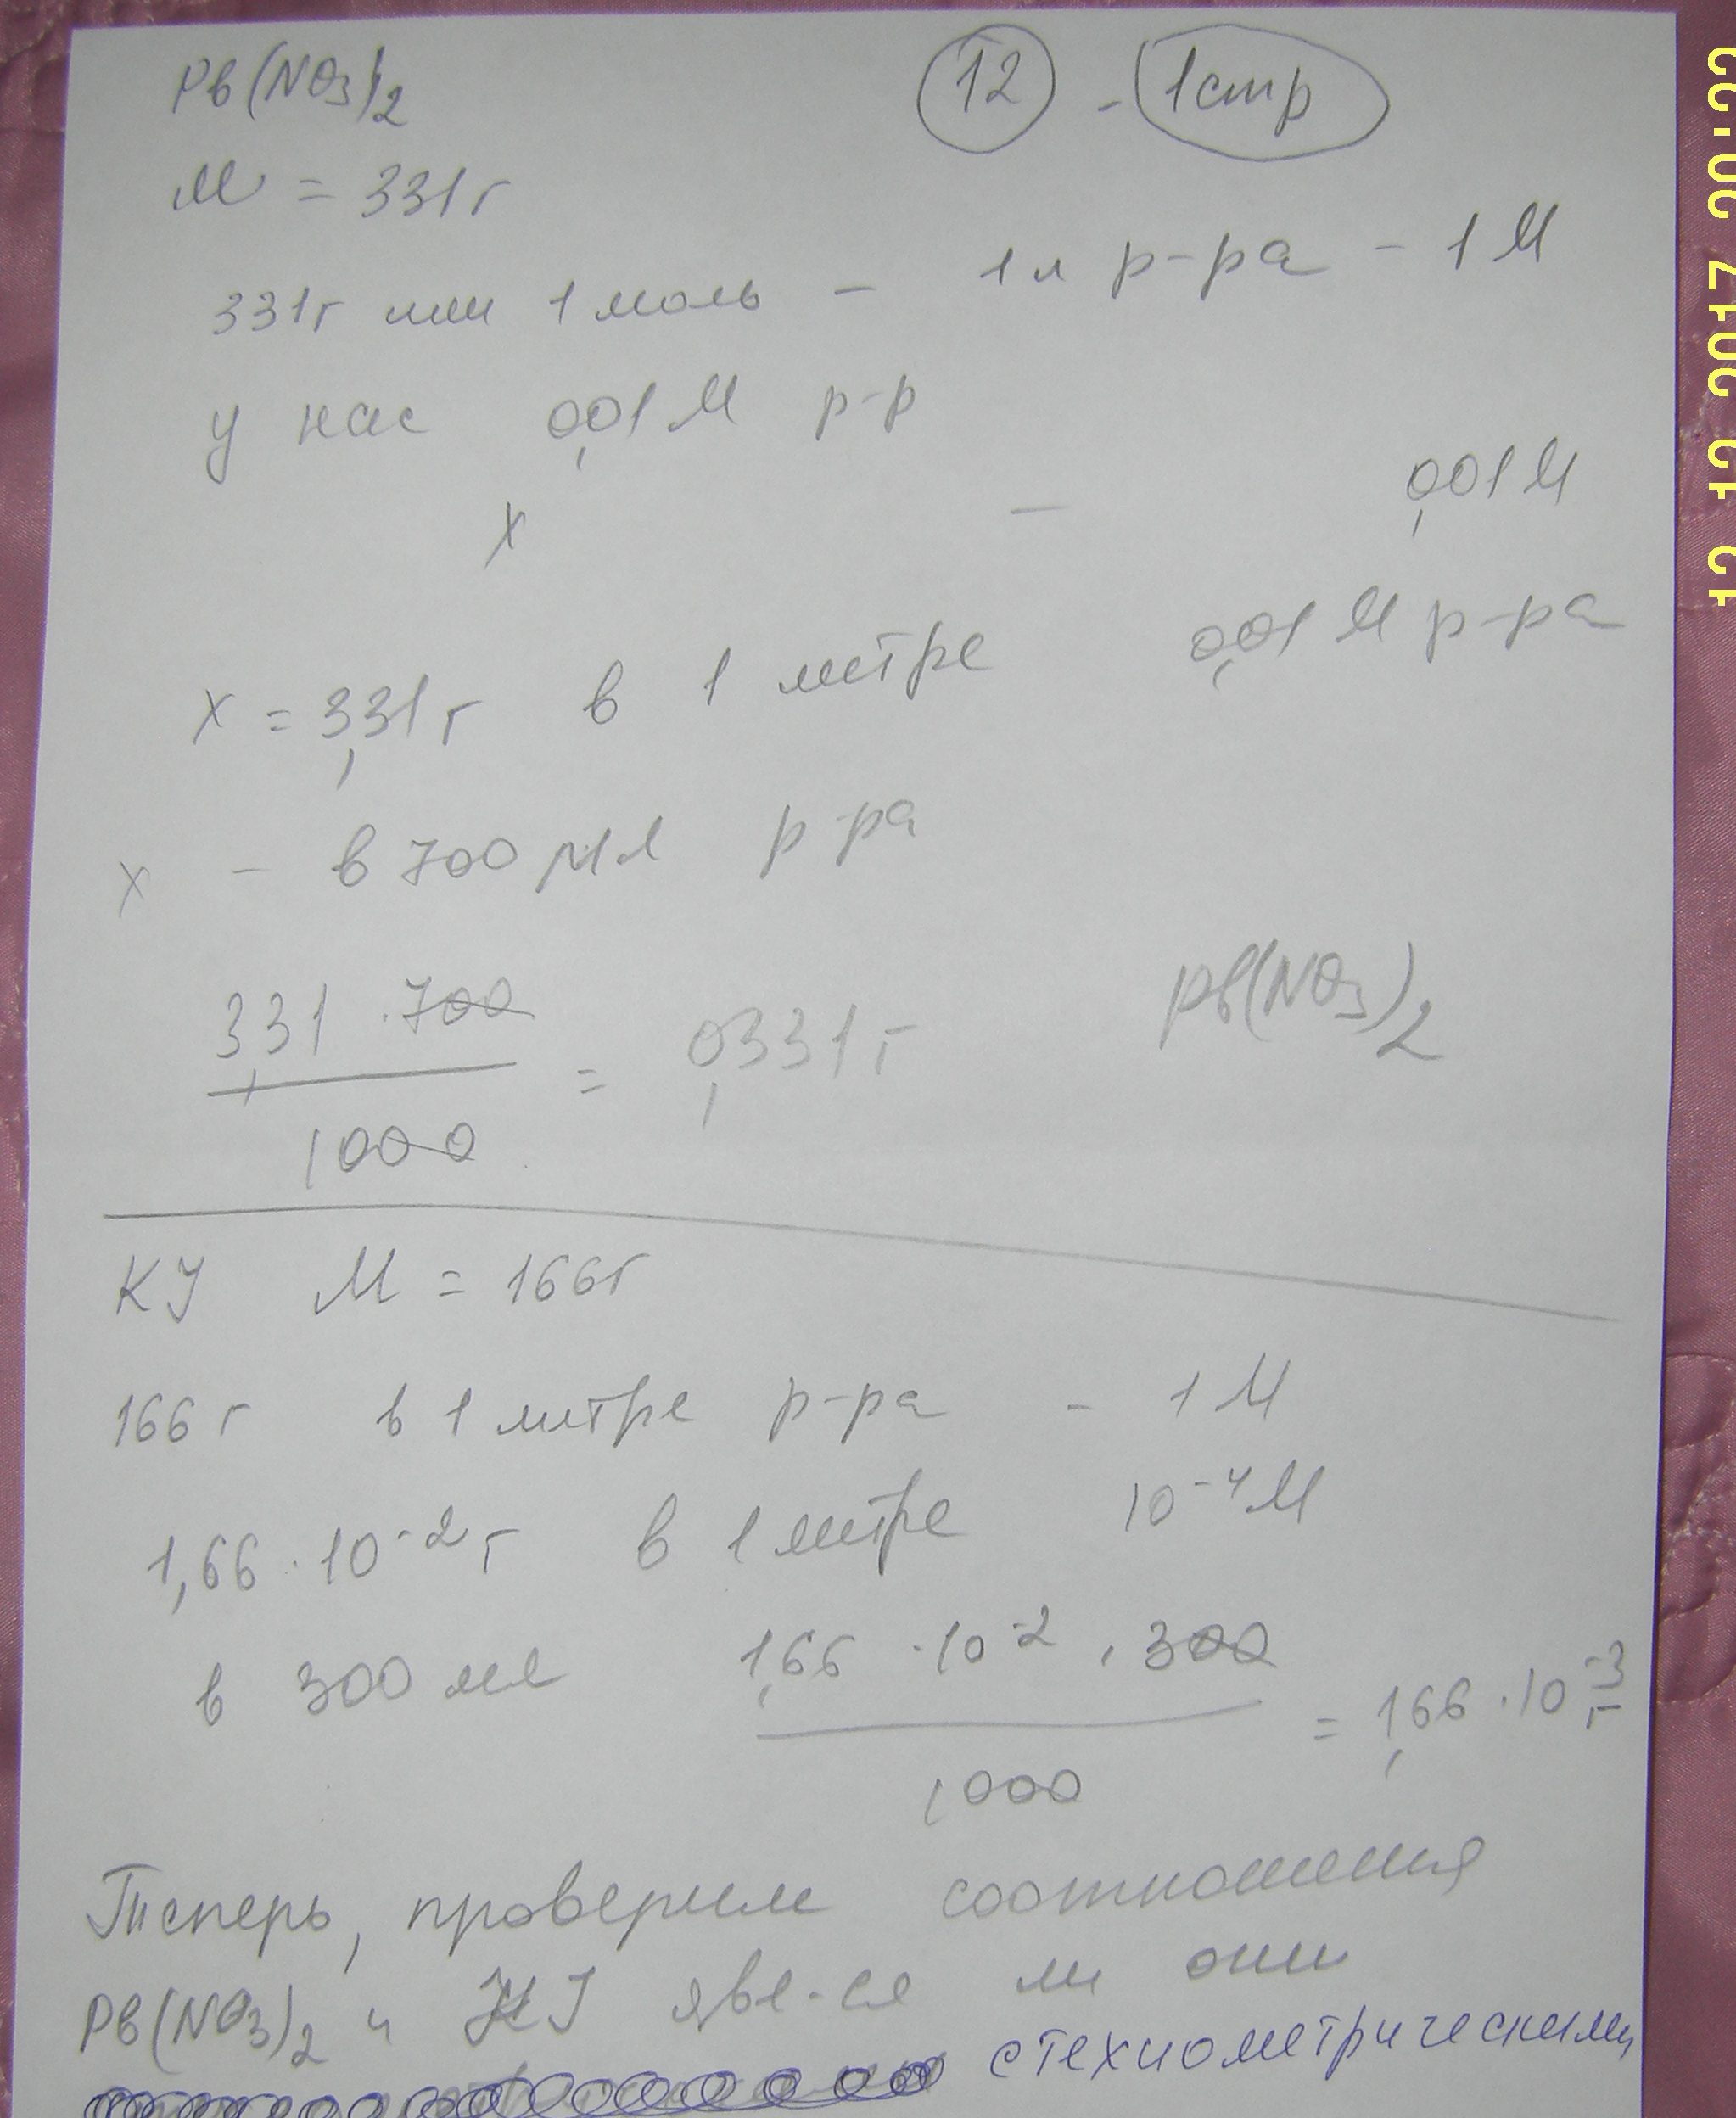 Pb(NO3)2
12 - 1 стр
M = 331 г
331 г или 1 моль - 1 л р-ра - 1 М
у нас 0,01 М р-р
х - 0,01 М
х = 3,31 г в 1 литре 0,01 М р-ра
х - в 700 мл р-ра
3,31 · 700
= 0,331 г Pb(NO3)2
1000
KJ M = 166 г
166 г в 1 литре р-ра - 1 М
1,66 · 10⁻² г в 1 литре 10⁻⁴ М
в 300 мл 1,66 · 10⁻² · 300
= 1,66 · 10⁻³ г
1000
Теперь, проверим соотношения
Pb(NO3)2 и KJ явл-ся ли они
стехиометрическими
12 12 2017 20:22